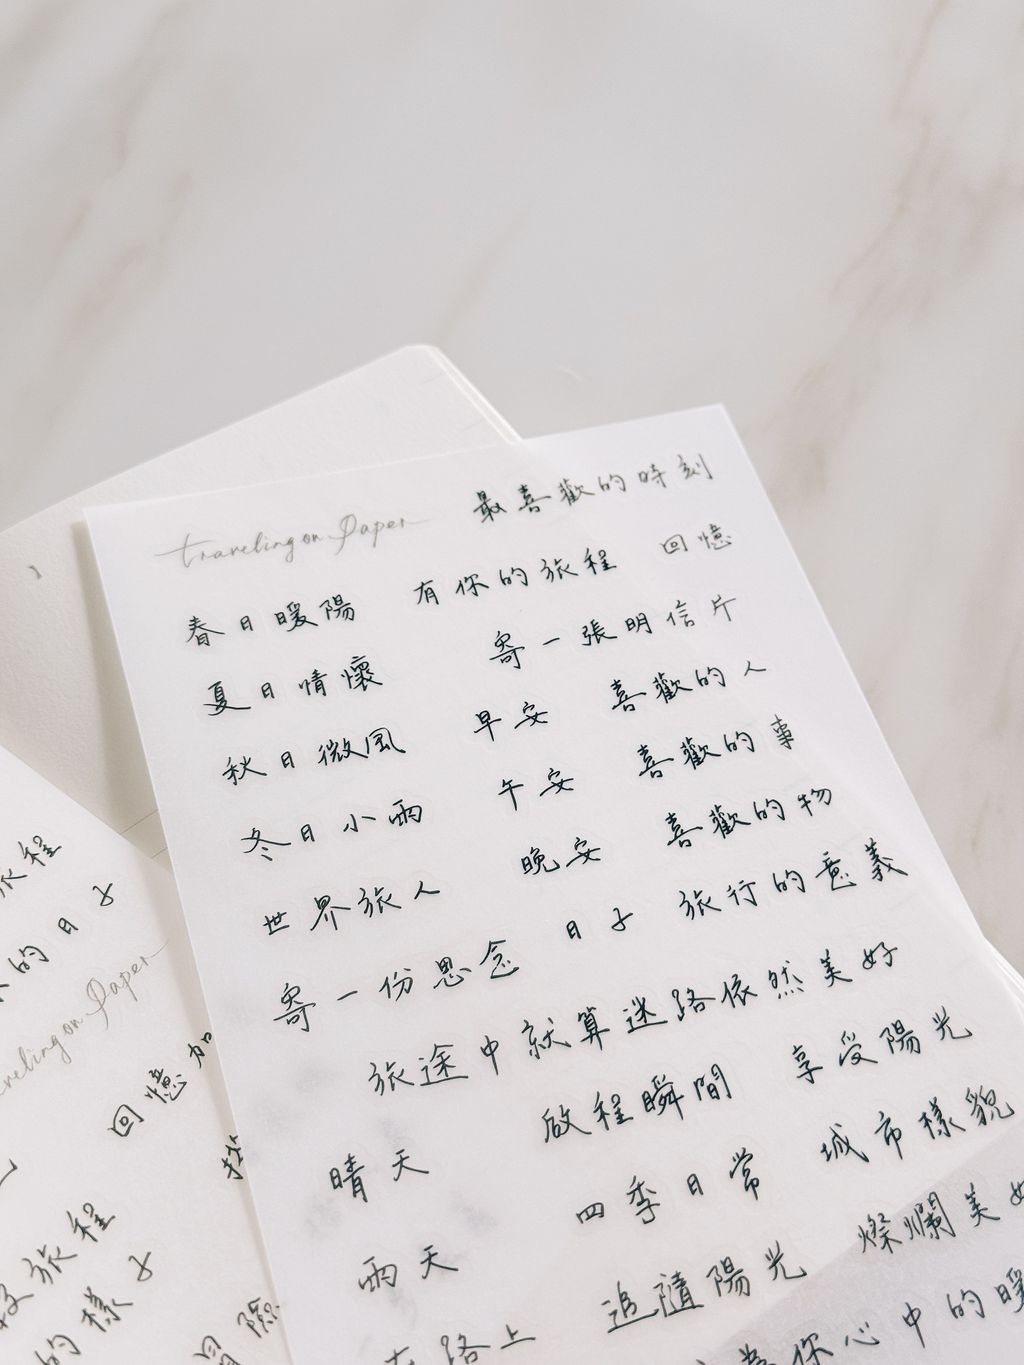 最喜歡的時刻
traveling on Paper
春日暖陽 有你的旅程 回憶
夏日情懷 寄一張明信片
秋日微風 早安 喜歡的人
冬日小雨 午安 喜歡的事
世界旅人 晚安 喜歡的物
寄一份思念 日子 旅行的意義
旅途中就算迷路依然美好
晴天 啟程瞬間 享受陽光
雨天 四季日常 城市樣貌
在路上 追隨陽光 燦爛美好
你心中的暖
旅程
的日子
traveling on Paper
回憶加
旅程
的樣子
冒險